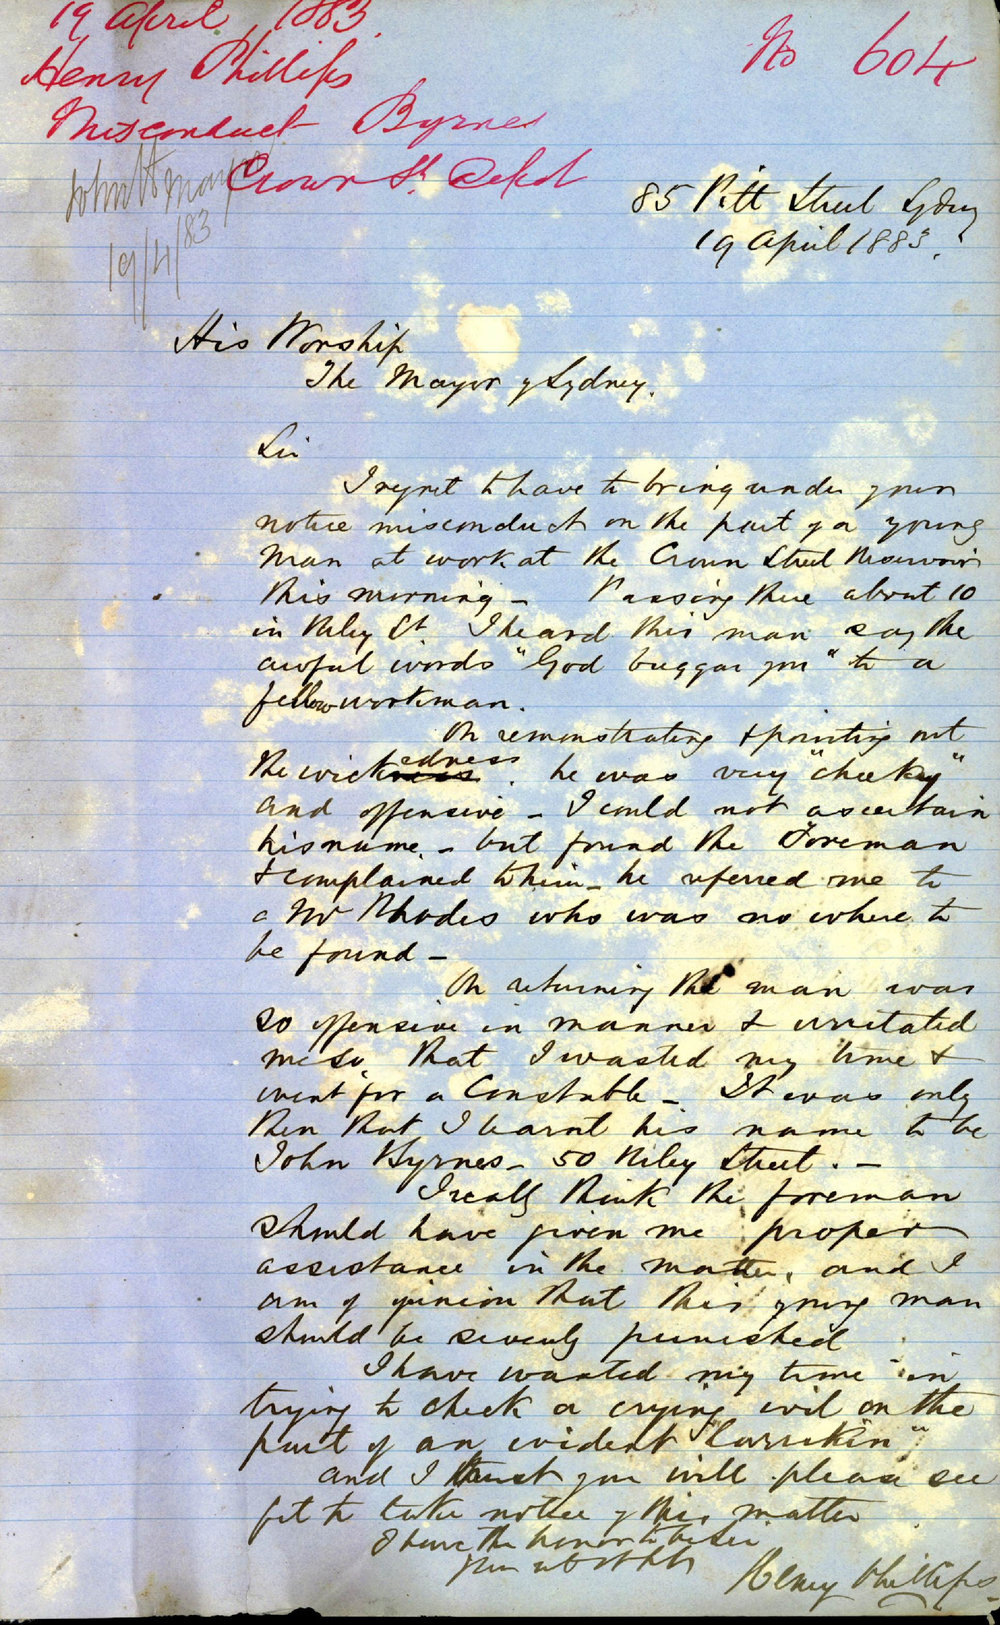 19 April 1883.
Henry Phillips
No 604
Misconduct Byrnes
Crown St. Depot
John H
19/4/83
85 Pitt Street Sydney
19 April 1883.
His Worship
The Mayor of Sydney.
Sir
I regret to have to bring under your
notice misconduct on the part of a young
man at work at the Crown Street Reservoir
this morning - Passing there about 10
in Riley St. I heard this man say the
awful words "God buggar you" to a
fellow workman.
On remonstrating & pointing out
the wickedness. he was very "cheeky"
and offensive - I could not ascertain
his name. - but found the Foreman
& complained to him - he referred me to
a Mr Rhodes who was no where to
be found -
On returning the man was
so offensive in manner & irritated
me so, that I wasted my time &
went for a Constable - It was only
then that I learnt his name to be
John Byrnes - 50 Riley Street. -
I really think the foreman
should have given me proper
assistance in the matter, and I
am of opinion that this young man
should be severely punished
I have wasted my time in
trying to check a crying evil on the
part of an evident "larrikin"
and I trust you will please see
fit to take notice of this matter
I have the honor to be Sir
Your
Henry Phillips